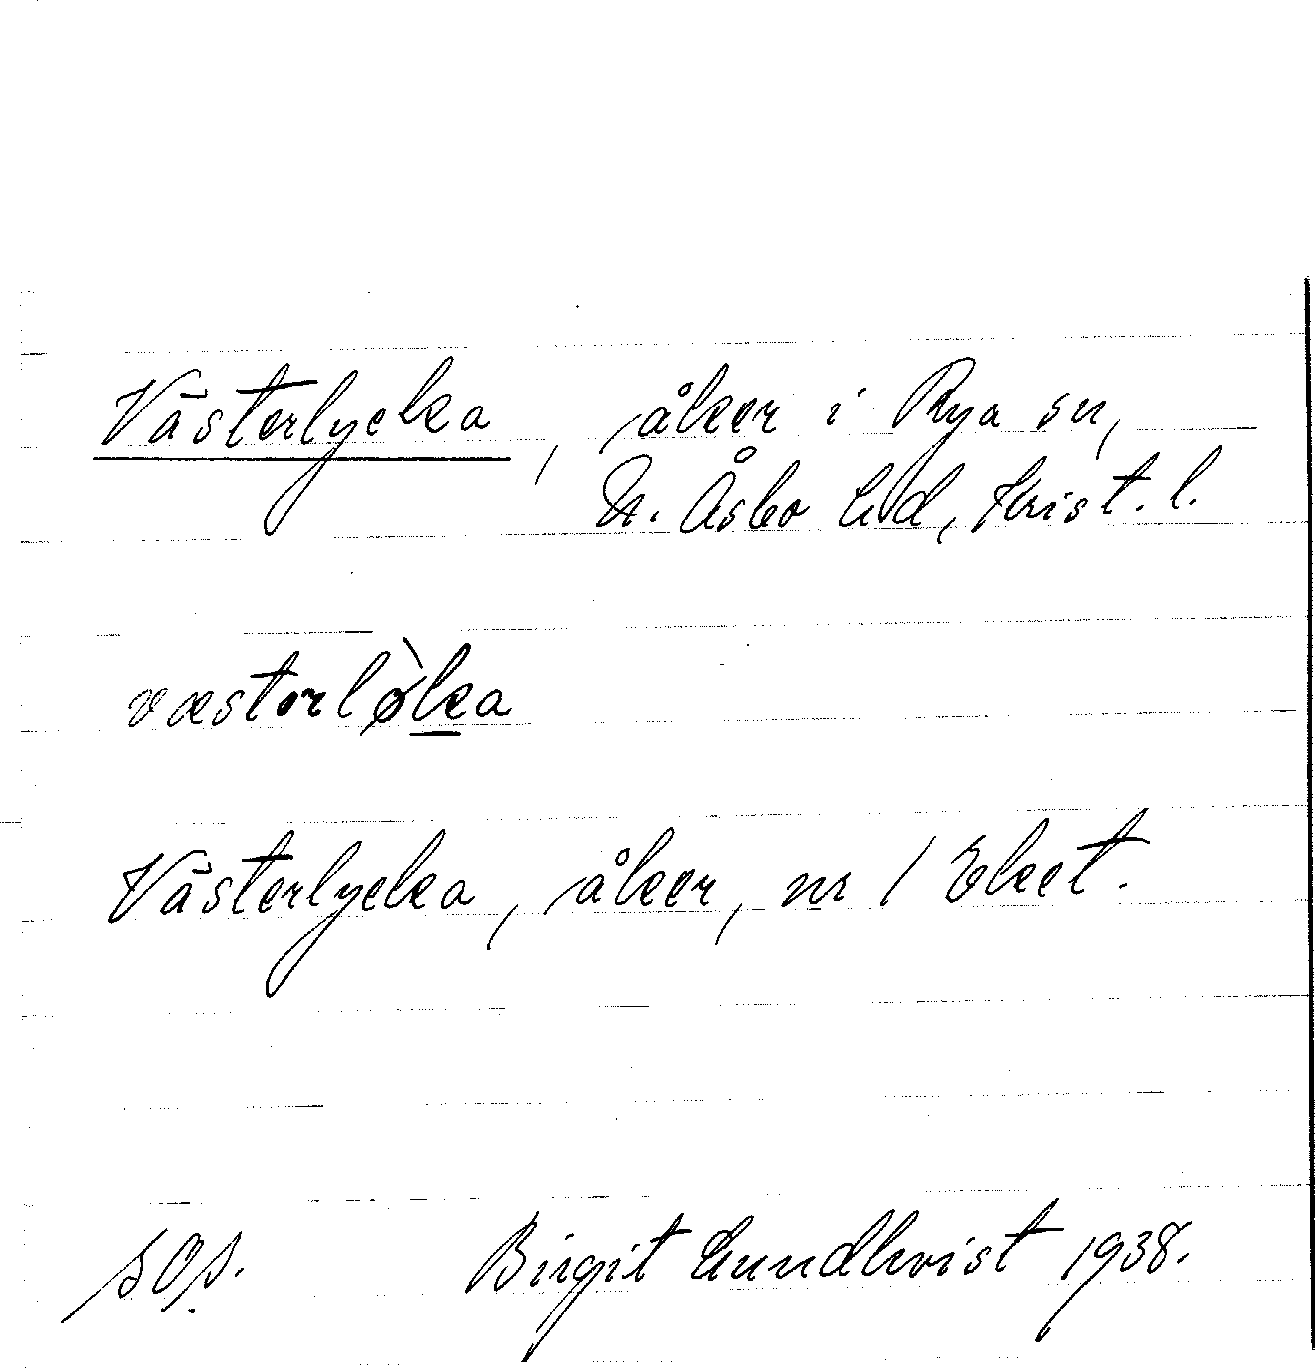 Västerlycka, åker i Rya sn,
N. Åsbo hd, Krist. l.
væstərlø̀ka
Västerlycka, åker, nr 1 Eket.
sOs.
Birgit Lundkvist 1938.